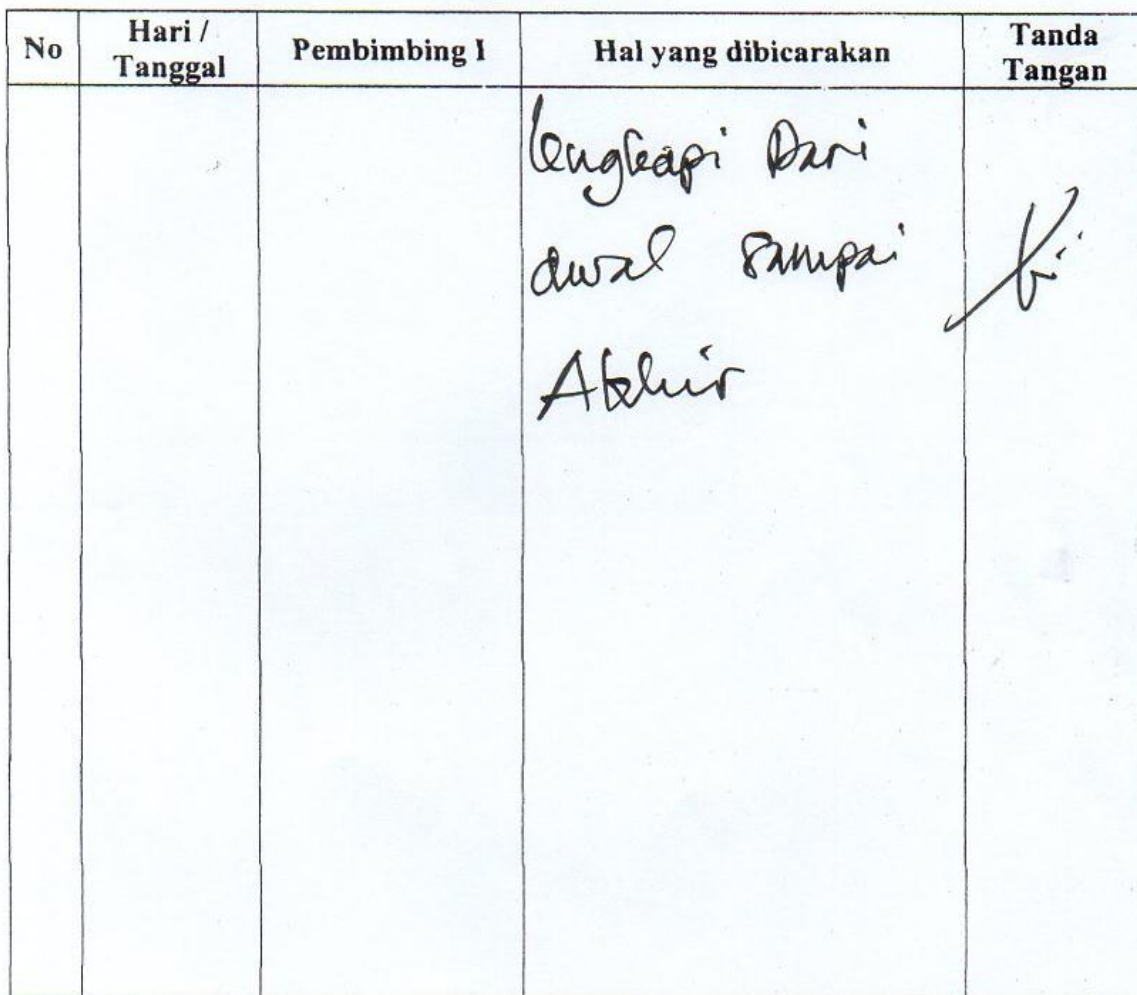 No Hari / Tanggal Pembimbing I Hal yang dibicarakan Tanda Tangan
lengkapi Dari
awal sampai
Akhir